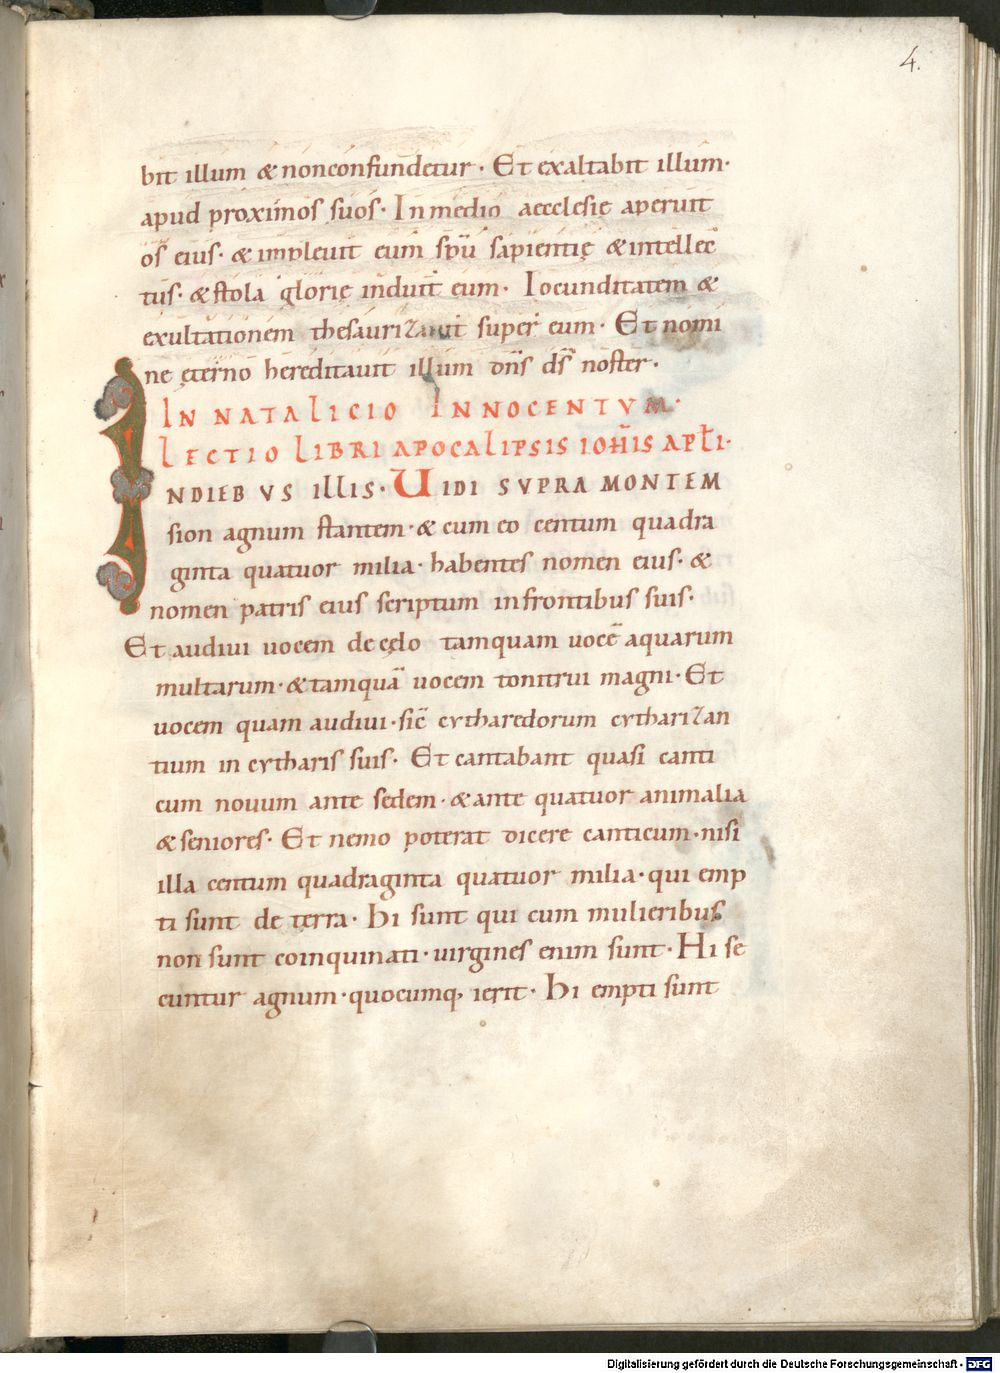 4.
bit illum & nonconfundetur · Et exaltabit illum·
apud proximos suos · In medio aecclesię aperuit
os eius · & impleuit eum sp̄u sapientię & intellec
tus · & stola glorię induit eum · Iocunditatem &
exultationem thesaurizauit super eum · Et nomi
ne ęterno hereditauit illum dn̄s ds̄ noster ·
IN NATALICIO INNOCENTVM·
LECTIO LIBRI APOCALIPSIS IOHIS APLI·
INDIEBVS ILLIS · UIDI SVPRA MONTEM
sion agnum stantem · & cum eo centum quadra
ginta quatuor milia · habentes nomen eius · &
nomen patris eius scriptum infrontibus suis ·
Et audiui uocem de cęlo tamquam uocē aquarum
multarum · & tamquā uocem tonitrui magni · Et
uocem quam audiui · sic̄ cytharedorum cytharizan
tium in cytharis suis · Et cantabant quasi canti
cum nouum ante sedem · & ante quatuor animalia
& seniores · Et nemo poterat dicere canticum · nisi
illa centum quadraginta quatuor milia · qui emp
ti sunt de terra · Hi sunt qui cum mulieribus
non sunt coinquinati · uirgines enim sunt · Hi se
cuntur agnum · quocumq, ierit · Hi empti sunt
Digitalisierung gefördert durch die Deutsche Forschungsgemeinschaft - DFG